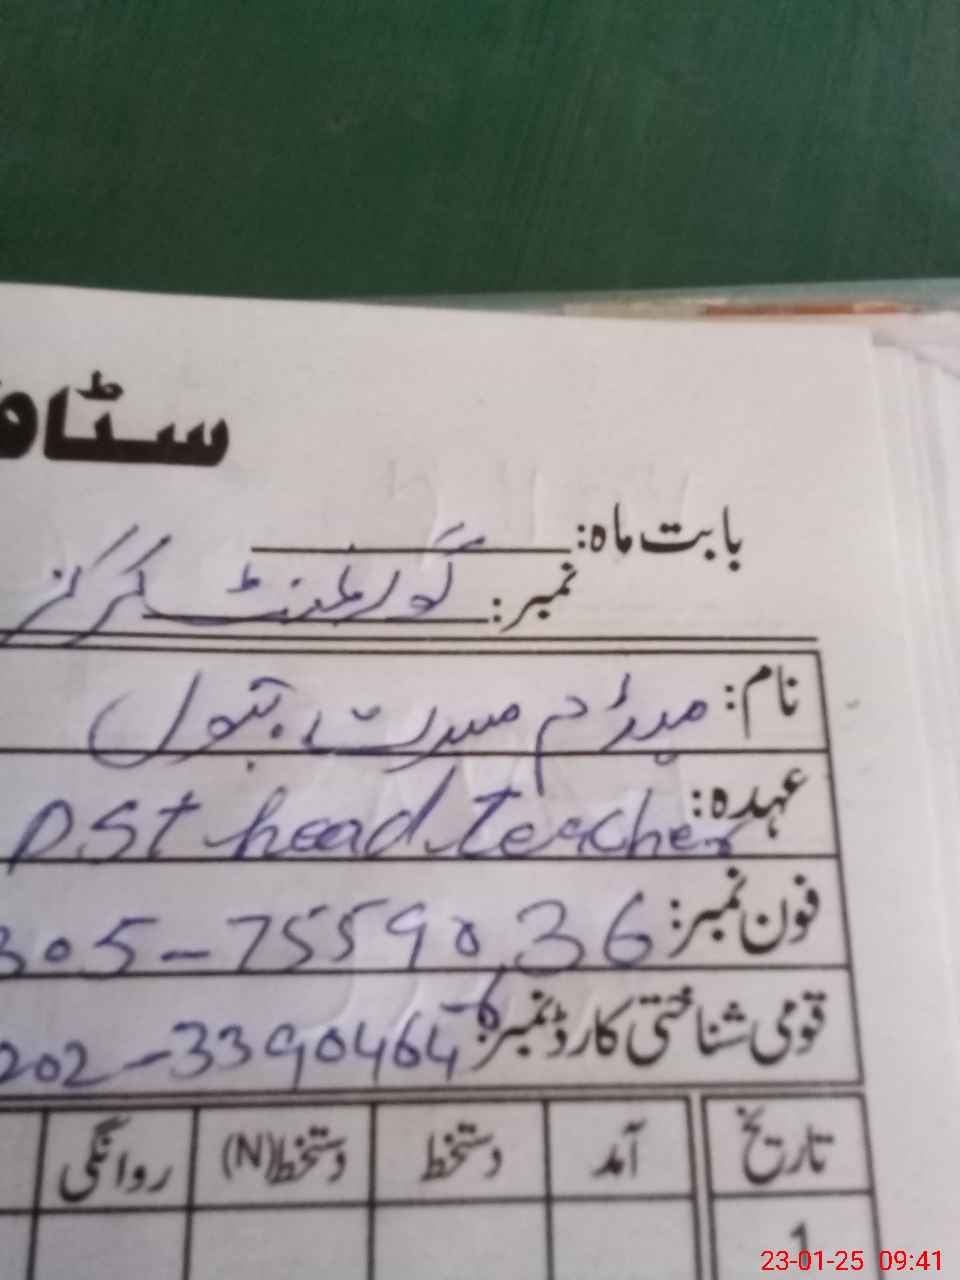 سٹاف
بابت ماہ:
نمبر: گورنمنٹ گرلز
نام: میڈم مسرت بتول
عہدہ: PST head teacher
فون نمبر: 305-7559036
قومی شناختی کارڈ نمبر: 202-3390464-6
تاریخ آمد دستخط دستخط(N) روانگی
1
23-01-25 09:41